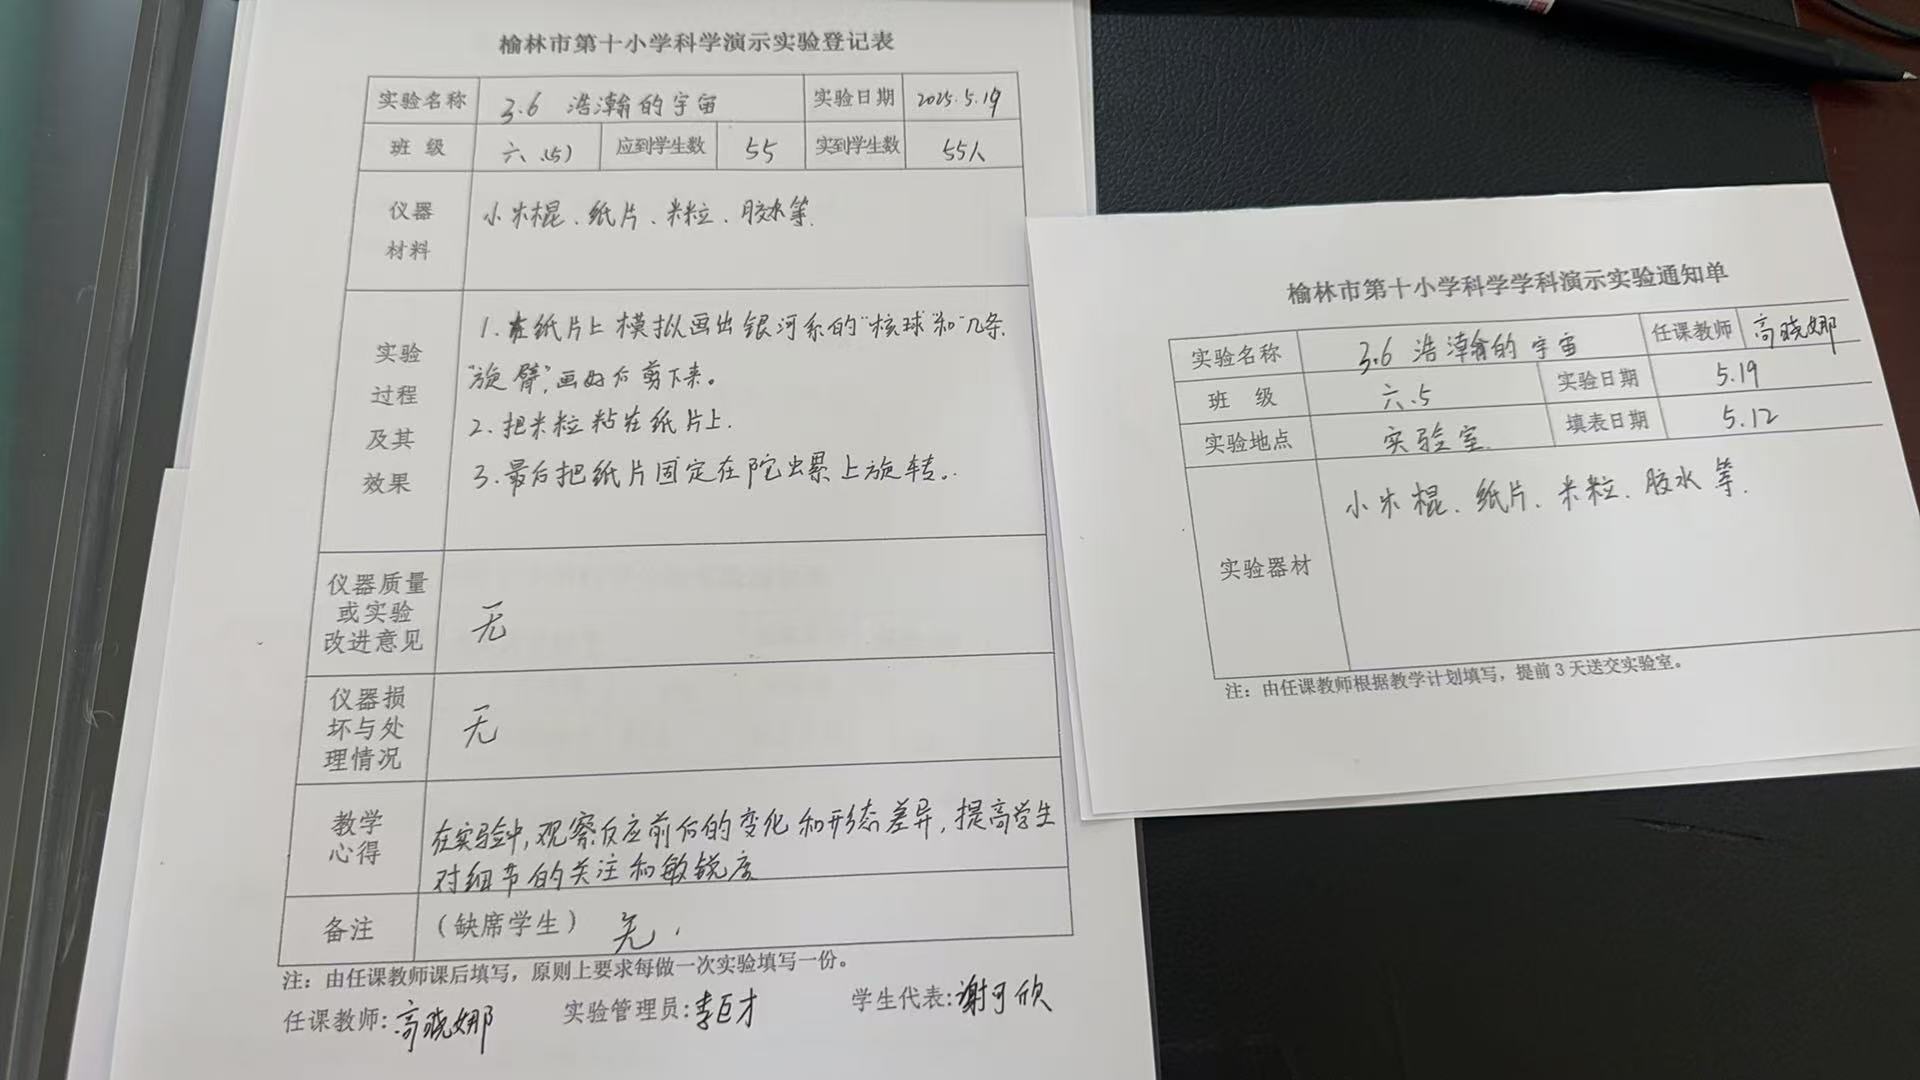 榆林市第十小学科学演示实验登记表
实验名称 3.6 浩瀚的宇宙 实验日期 2025.5.19
班 级 六.(5) 应到学生数 55 实到学生数 55人
仪器
材料
小木棍、纸片、米粒、胶水等.
实验
过程
及其
效果
1.在纸片上模拟画出银河系的“核球”和“几条
“旋臂”,画好后剪下来。
2.把米粒粘在纸片上.
3.最后把纸片固定在陀螺上旋转。
仪器质量
或实验
改进意见
无
仪器损
坏与处
理情况
无
教学
心得
在实验中,观察反应前后的变化和形态差异,提高学生
对细节的关注和敏锐度
备注 (缺席学生) 无.
注：由任课教师课后填写，原则上要求每做一次实验填写一份。
任课教师:高晓娜 实验管理员:李巨才 学生代表:谢可欣
榆林市第十小学科学学科演示实验通知单
实验名称 3.6 浩瀚的宇宙 任课教师 高晓娜
班 级 六.5 实验日期 5.19
实验地点 实验室 填表日期 5.12
实验器材
小木棍、纸片、米粒、胶水等.
注：由任课教师根据教学计划填写，提前3天送交实验室。